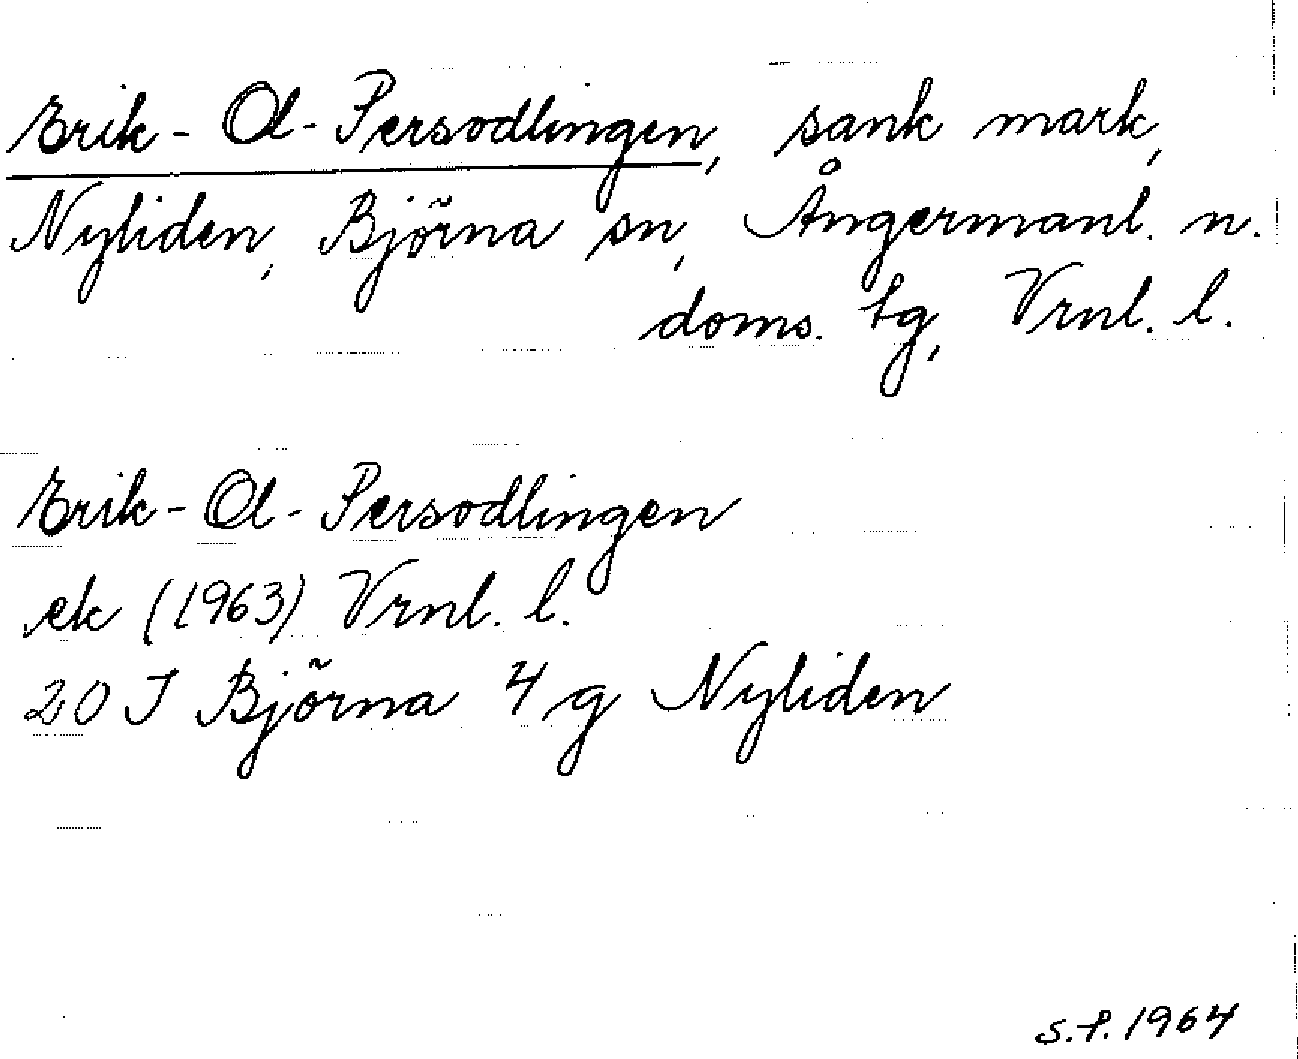 Erik-Ol-Persodlingen, sank mark,
Nyliden, Björna sn, Ångermanl. n.
doms. tg, Vrnl. l.
Erik-Ol-Persodlingen
ek (1963) Vrnl. l.
20 J Björna 4 g Nyliden
S.P. 1964